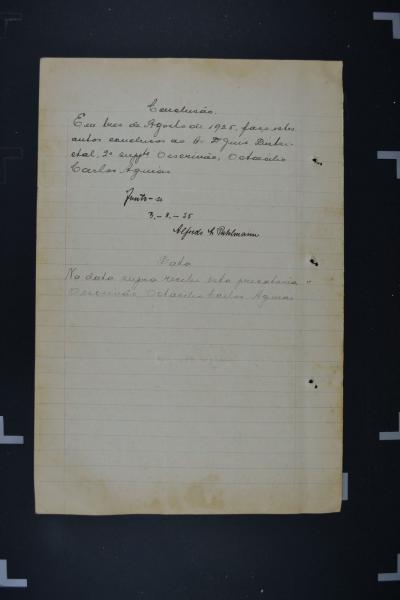 Conclusão.
Em tres de Agosto de 1925, faço estes
autos conclusos ao Dr Juiz Distri-
ctal, 2º suppte O escrivão, Octacilio
Carlos Aguiar
Junte-se
3-8-25
Alfredo
Data
Na data supra recebi esta precatoria
O escrivão Octacilio Carlos Aguiar